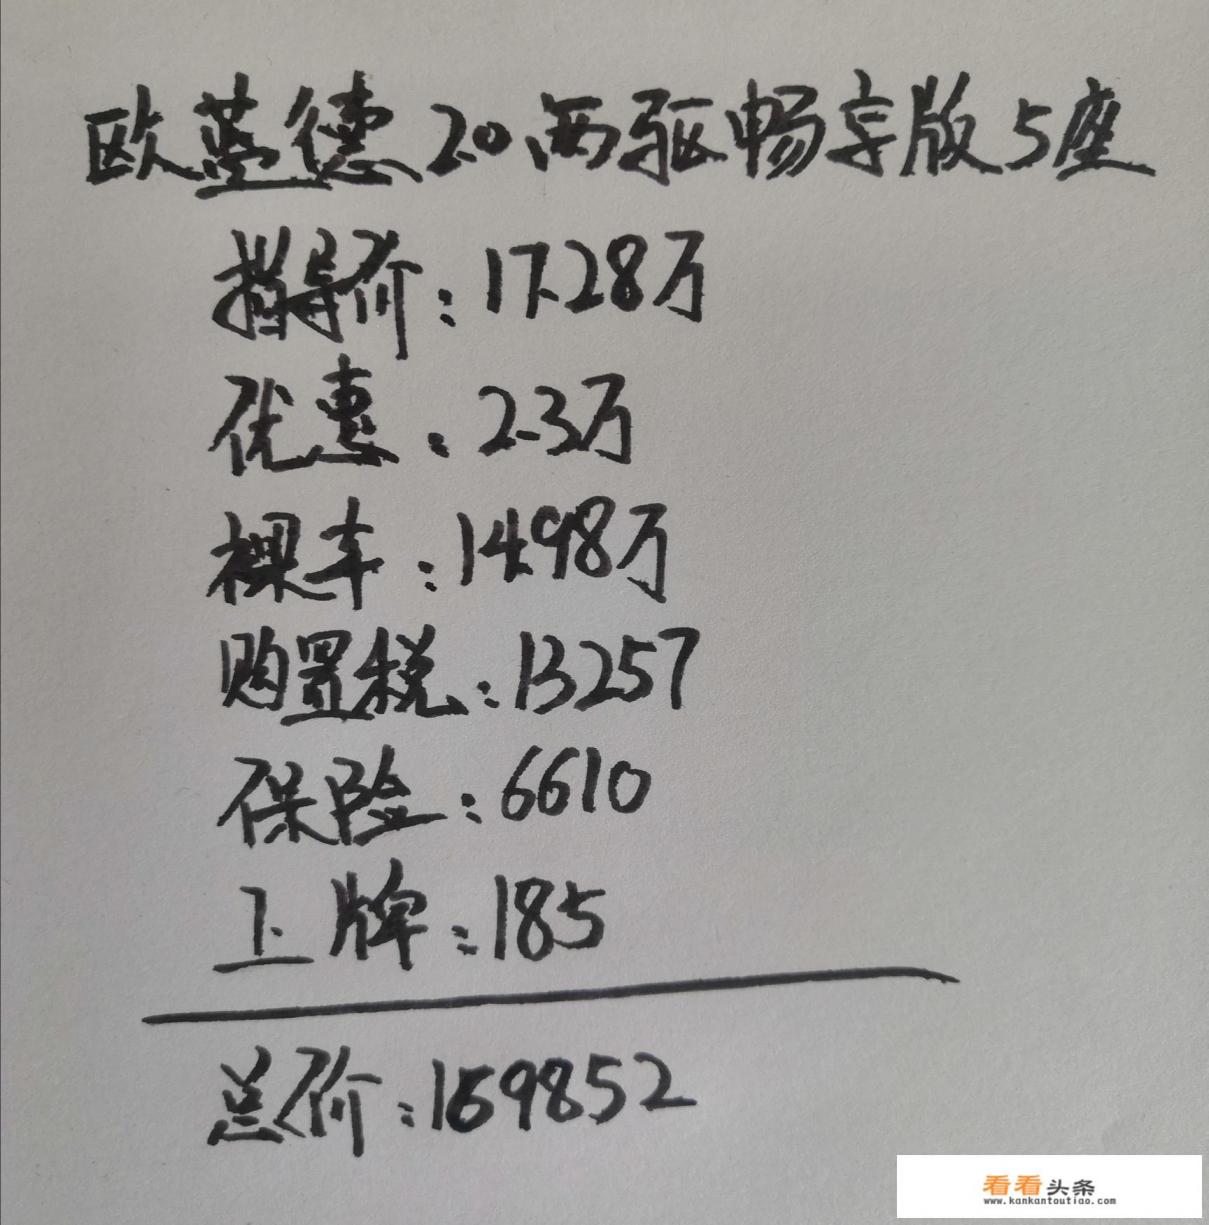 欧蓝德2.0两驱畅享版5座
指导价:17.28万
优惠:2.3万
裸车:14.98万
购置税:13257
保险:6610
上牌:185
总价:169852
看看头条
www.kankantoutiao.com